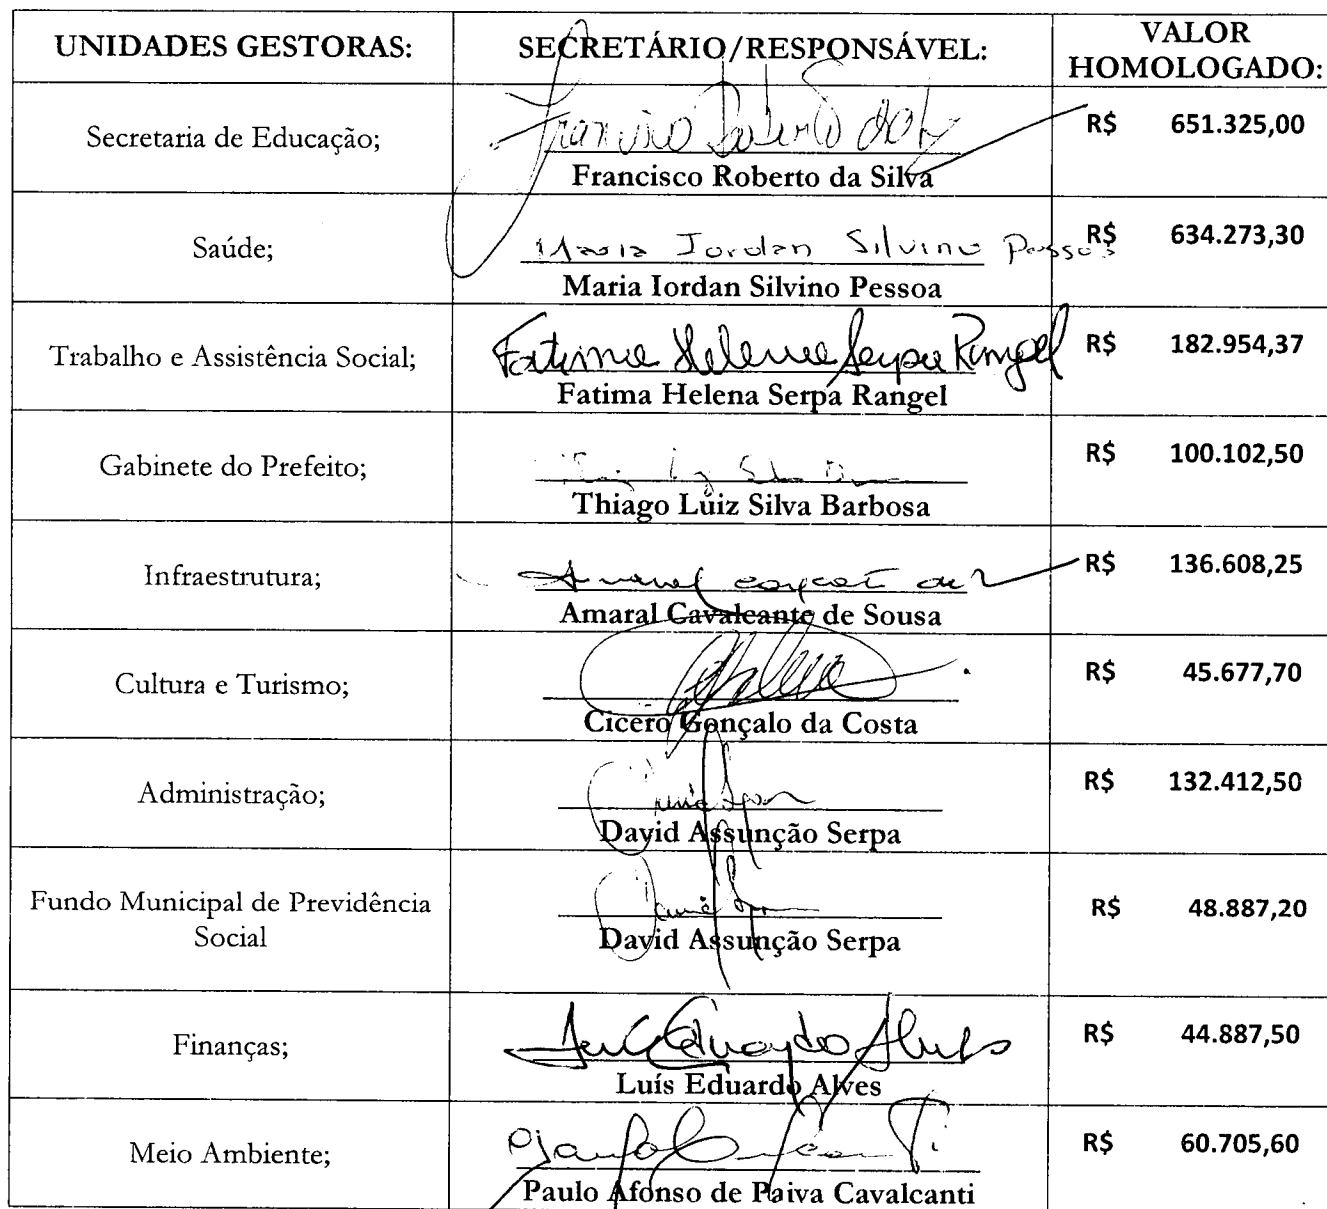 UNIDADES GESTORAS:
SECRETÁRIO/RESPONSÁVEL:
VALOR
HOMOLOGADO:
Secretaria de Educação;
Francisco Roberto da Silva
R$ 651.325,00
Saúde;
Maria Iordan Silvino Pessoa
Maria Iordan Silvino Pessoa
R$ 634.273,30
Trabalho e Assistência Social;
Fatima Helena Serpa Rangel
Fatima Helena Serpa Rangel
R$ 182.954,37
Gabinete do Prefeito;
Thiago Luiz Silva Barbosa
R$ 100.102,50
Infraestrutura;
Amaral Cavalcante de Sousa
R$ 136.608,25
Cultura e Turismo;
Cicero Gonçalo da Costa
R$ 45.677,70
Administração;
David Assunção Serpa
R$ 132.412,50
Fundo Municipal de Previdência
Social
David Assunção Serpa
R$ 48.887,20
Finanças;
Luís Eduardo Alves
R$ 44.887,50
Meio Ambiente;
Paulo Afonso de Paiva Cavalcanti
R$ 60.705,60